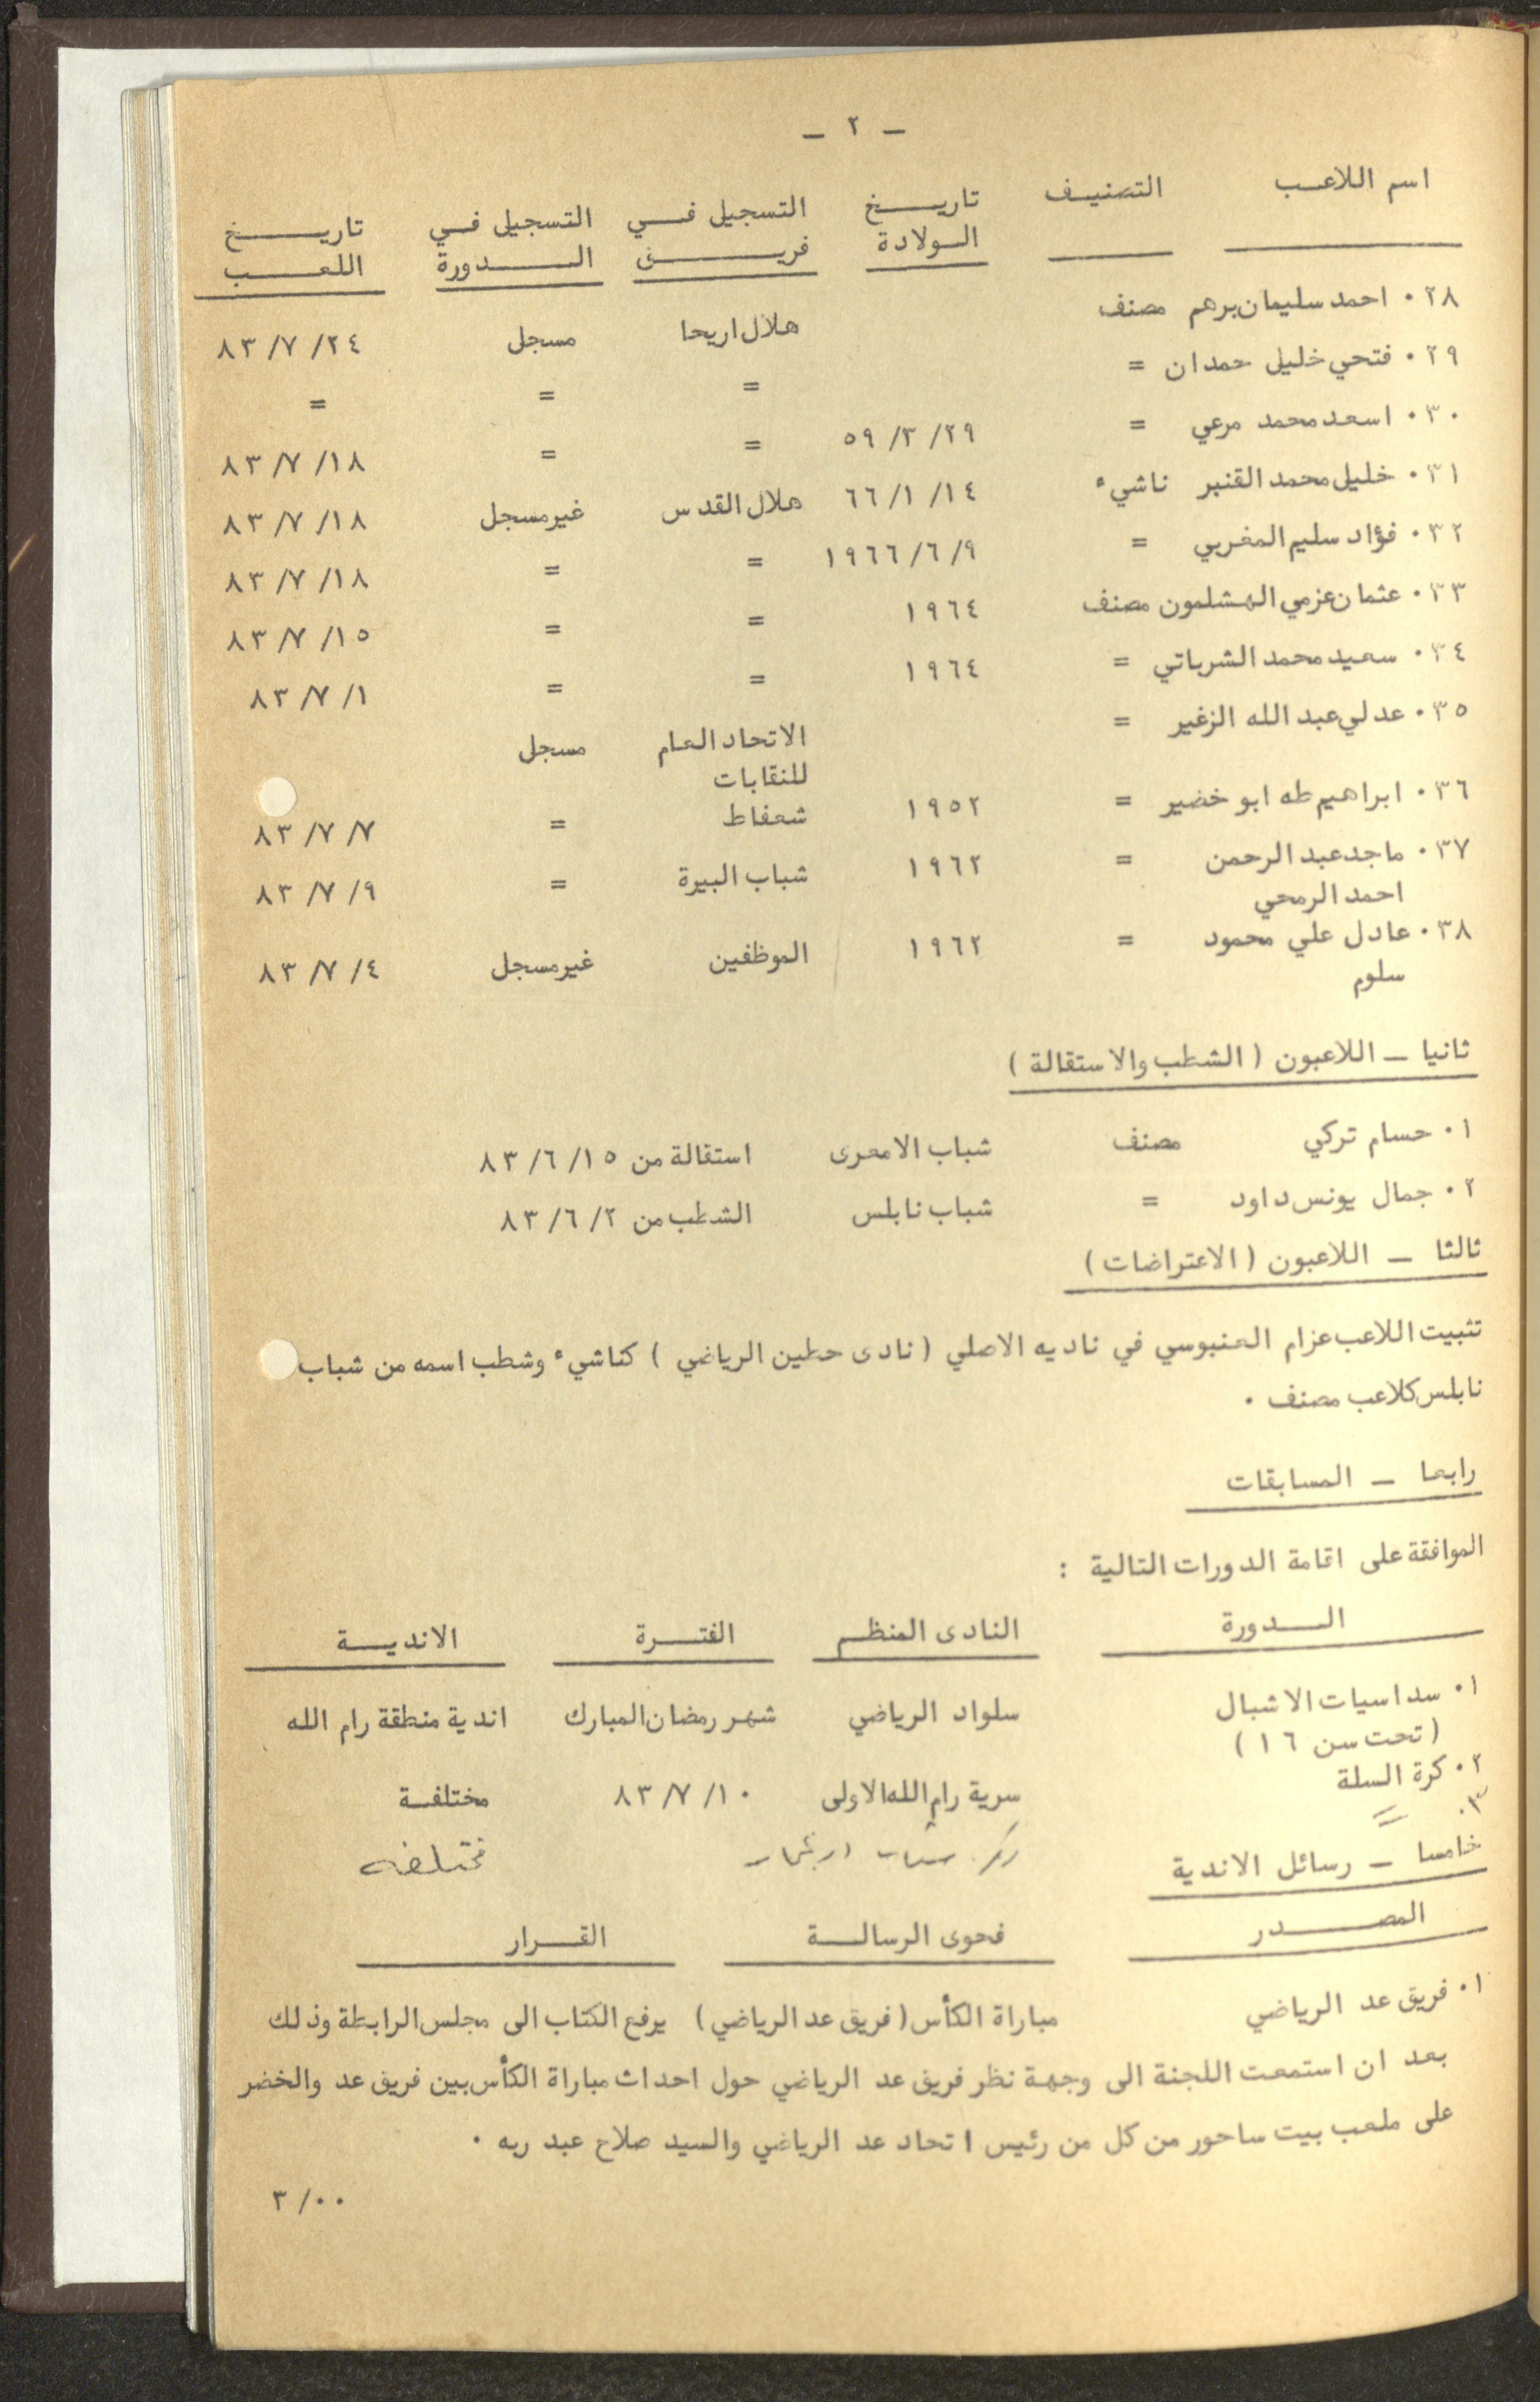 - ٢ -
اسم اللاعب التصنيف تاريخ الولادة التسجيل في فريق التسجيل في الدورة تاريخ اللعب
٢٨٠ احمد سليمان برهم مصنف هلال اريحا مسجل ٨٣/٧/٢٤
٢٩٠ فتحي خليل حمدان = = = =
٣٠٠ اسعد محمد مرعي = ٥٩/٣/٢٩ = = ٨٣/٧/١٨
٣١٠ خليل محمد القنبر ناشيء ٦٦/١/١٤ هلال القدس غير مسجل ٨٣/٧/١٨
٣٢٠ فؤاد سليم المغربي = ١٩٦٦/٦/٩ = = ٨٣/٧/١٨
٣٣٠ عثمان عزمي الهشلمون مصنف ١٩٦٤ = = ٨٣/٧/١٥
٣٤٠ سعيد محمد الشرباتي = ١٩٦٤ = = ٨٣/٧/١
٣٥٠ عدلي عبد الله الزغير = الاتحاد العام مسجل
للنقابات
٣٦٠ ابراهيم طه ابو خضير = ١٩٥٢ شعفاط = ٨٣/٧/٧
٣٧٠ ماجد عبد الرحمن = ١٩٦٢ شباب البيرة = ٨٣/٧/٩
احمد الرمحي
٣٨٠ عادل علي محمود = ١٩٦٢ الموظفين غير مسجل ٨٣/٧/٤
سلوم
ثانيا - اللاعبون ( الشطب والاستقالة )
١٠ حسام تركي مصنف شباب الامعرى استقالة من ٨٣/٦/١٥
٢٠ جمال يونس داود = شباب نابلس الشطب من ٨٣/٦/٢
ثالثا - اللاعبون ( الاعتراضات )
تثبيت اللاعب عزام العنبوسي في ناديه الاصلي ( نادى حطين الرياضي ) كناشيء وشطب اسمه من شباب
نابلس كلاعب مصنف ٠
رابعا - المسابقات
الموافقة على اقامة الدورات التالية :
الدورة النادى المنظم الفترة الاندية
١٠ سداسيات الاشبال سلواد الرياضي شهر رمضان المبارك اندية منطقة رام الله
( تحت سن ١٦ )
٢٠ كرة السلة سرية رام الله الاولى ٨٣/٧/١٠ مختلفة
٣٠ = مركز شباب مختلفه
خامسا - رسائل الاندية
المصدر فحوى الرسالة القرار
١٠ فريق عد الرياضي مباراة الكأس ( فريق عد الرياضي ) يرفع الكتاب الى مجلس الرابطة وذلك
بعد ان استمعت اللجنة الى وجهة نظر فريق عد الرياضي حول احداث مباراة الكأس بين فريق عد والخضر
على ملعب بيت ساحور من كل من رئيس اتحاد عد الرياضي والسيد صلاح عبد ربه ٠
٣/٠٠